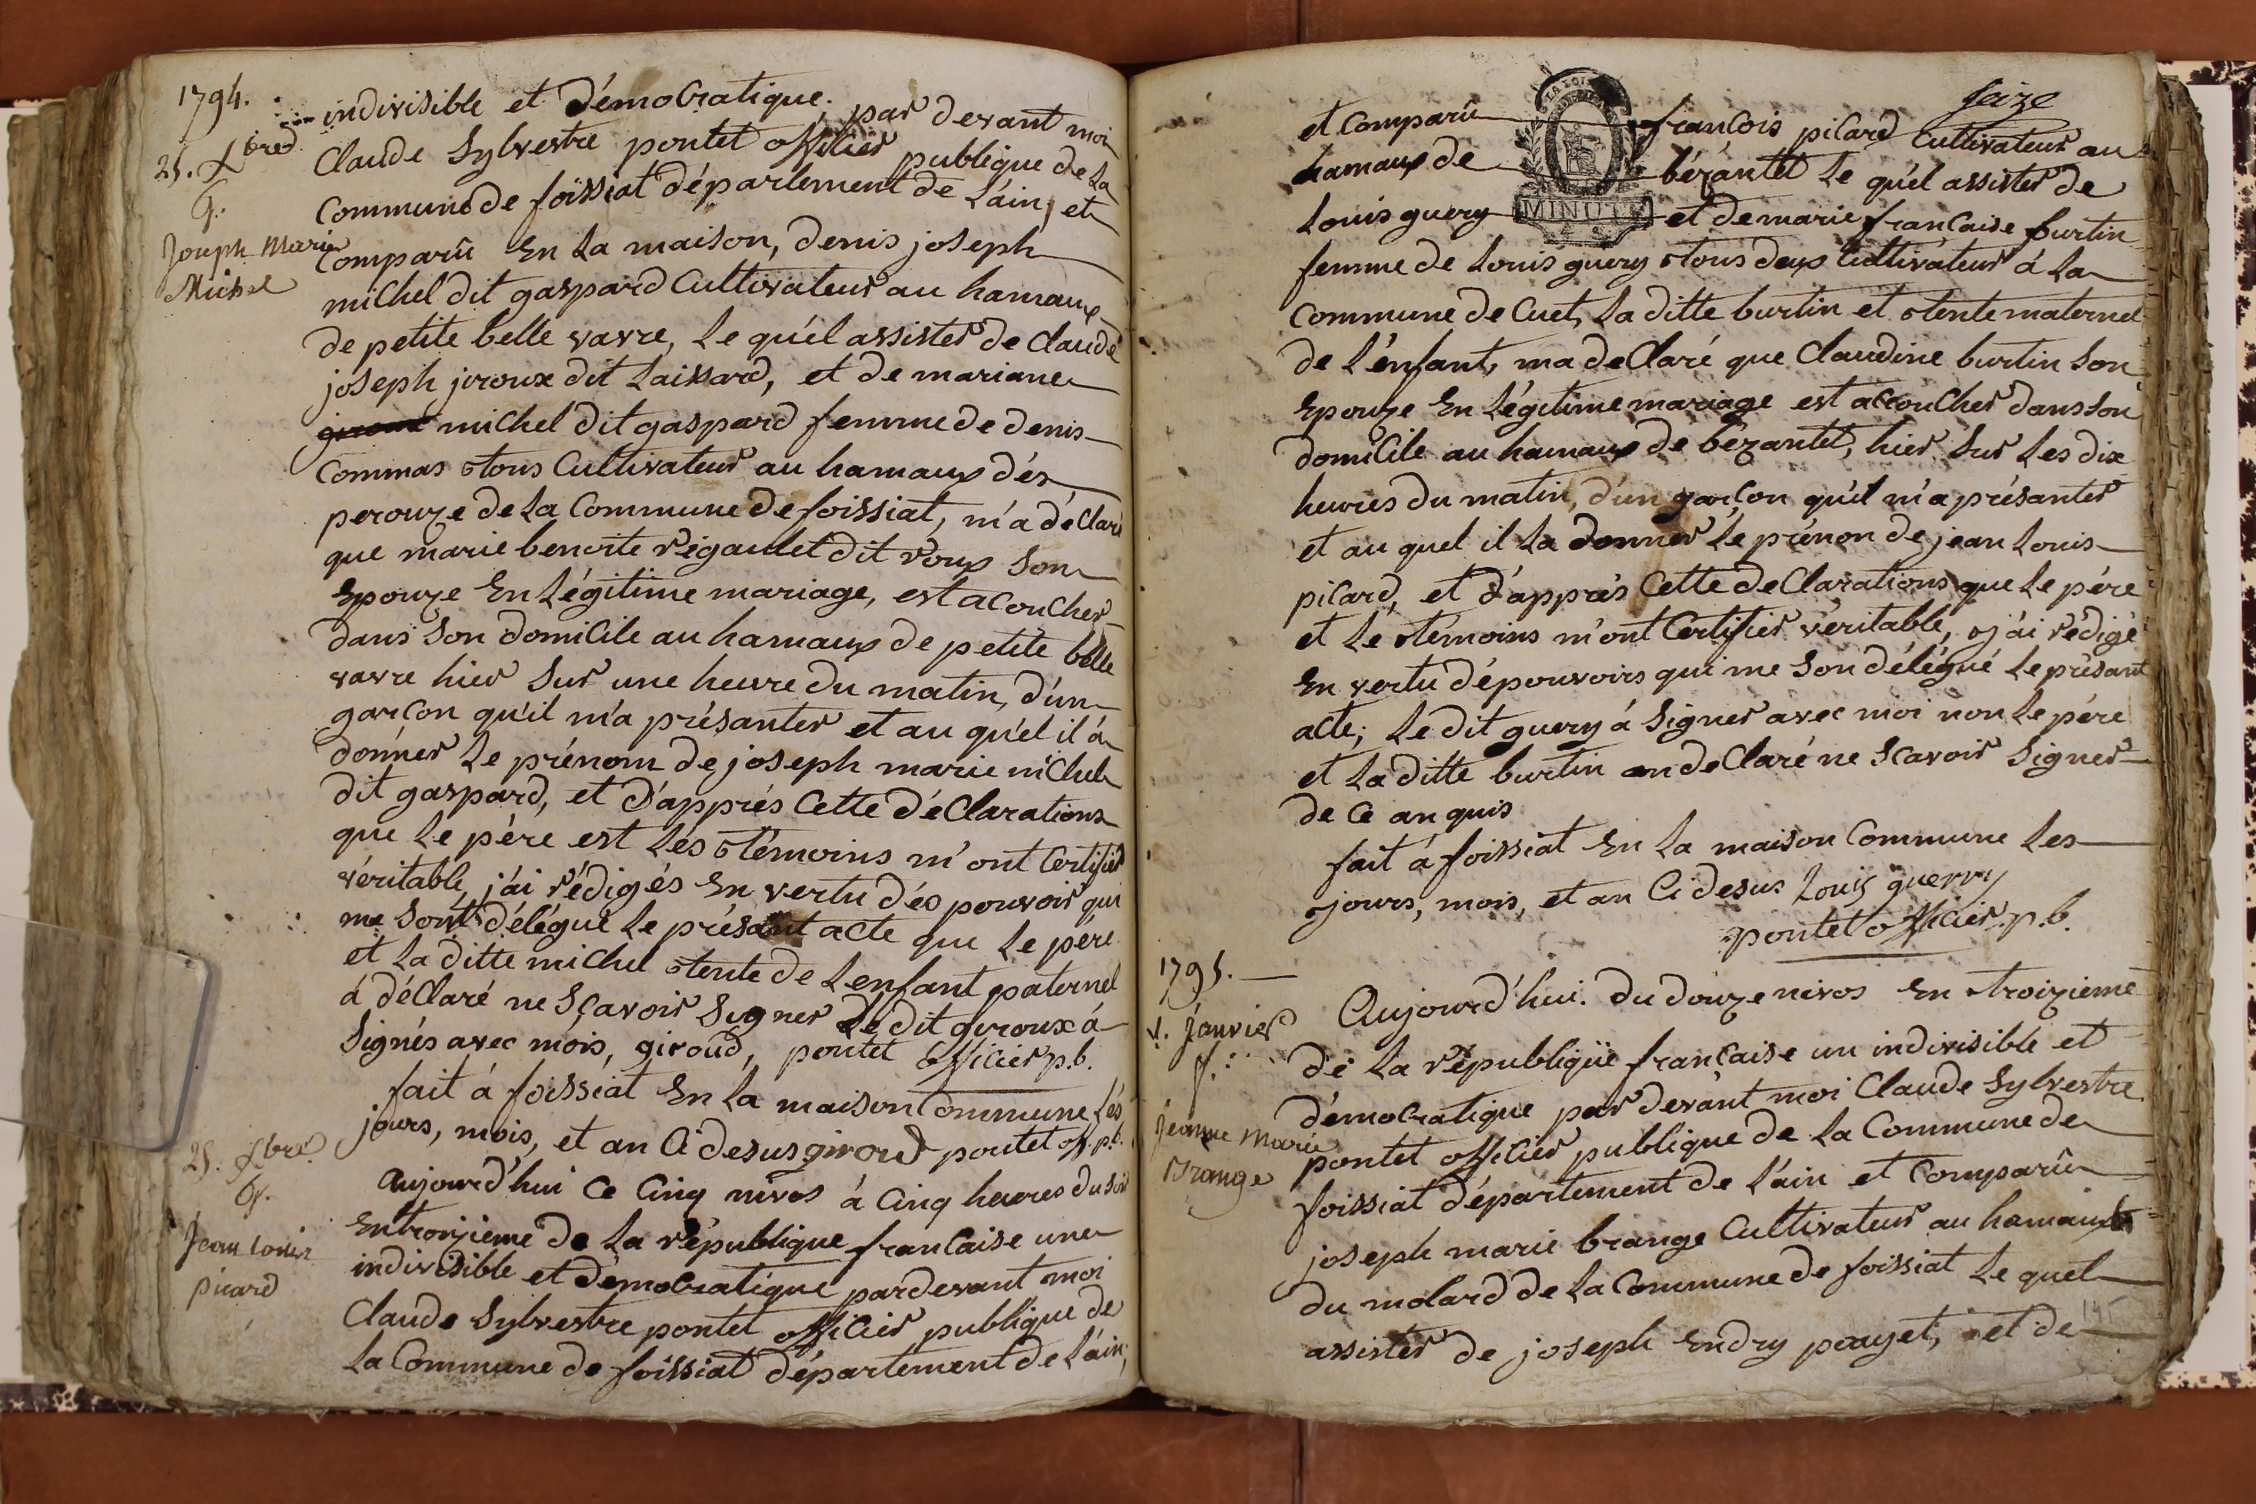 1794.
25. Xbre
G.
Joseph Marie
Michel
indivisible et démocratique, par devant moi
Claude Sylvestre pontet officier publique de La
Commune de foissiat département de L'ain, et
Comparû En La maison, denis joseph
michel dit gaspard Cultivateur au hamaux
de petite belle vavre, Le qu'el assister de Claude
joseph jiroux dit Laissard, et de mariane
giroux michel dit gaspard femme de denis
Commas tous Cultivateur au hamaux dés
perouze de La Commune de foissiat, m'a déClaré
que marie benoite régaudet dit roux Son
Epouze En Légitime mariage, est acoucher
dans Son domiCile au hamaux de petite belle
vavre hier Sur une heure du matin, d'un
garçon qu'il m'a présanter et au qu'el il á
donner Le prénom de joseph marie miChel
dit gaspard, et D'apprés Cette déClarations
que Le père est Les témoins m'ont Certifier
véritable, j'ai rédigés En vertu dés pouvoir qui
me Sont délégué Le présant acte que Le père
et La ditte michel tente de L'enfant paternel
á déClaré ne Sçavoir Signer Le dit giroux á
Signés avec mois, giroud, pontet officier p.b.
fait á foissiat En La maison Commune Lés
jours, mois, et an Ci desus giroud pontet off. p.b.
25. Xbre
G.
Jean Louis
picard
Aujourd'hui Ce Cinq nivos à Cinq heures du soir
En troizieme de La république franCaise une
indivisible et démocratique par devant moi
Claude Sylvestre pontet officier publique de
La Commune de foissiat département de L'ain,
seize
et Comparû françois piCard Cultivateur au
hamaux de bézantet Le qu'el assister de
Louis guery et de marie francaise burtin
MINUTE
femme de Louis guery tous deux Cultivateur á La
Commune de Cuet, La ditte burtin et tente maternel
de L'enfant, ma deClaré que Claudine burtin Son
Epouze En Légitime mariage est accouCher dans Son
domiCile au hamaux de bézantet, hier Sur Les dix
heures du matin, d'un garçon qu'il m'a présanter
et au quel il La donner Le prénon de jean Louis
piCard, et d'apprés Cette deClarations que Le pére
et Le témoins m'ont Certifier véritable, j'ai rédigé
En vertu dépouvoirs qui me Son délégué Le présant
acte; Le dit guery á Signer avec moi non Le pére
et La ditte burtin on deClaré ne Scavoir Signer
de Ce an quis
fait á foissiat En La maison Commune Les
jours, mois, et an Ci desus Louis guerry
pontet officier p.b.
1795.
1. Janvier
f.
Jeanne Marie
Brange
Aujourd'hui. du douze nivos En troizieme
de La république française un indivisible et
démocratique par devant moi Claude Sylvestre
pontet officier publique de La Commune de
foissiat département de L'ain et Comparû
joseph marie brange Cultivateur au hamaux
du molard de La Commune de foissiat Le quel
assister de joseph Endry pouget, et de
145